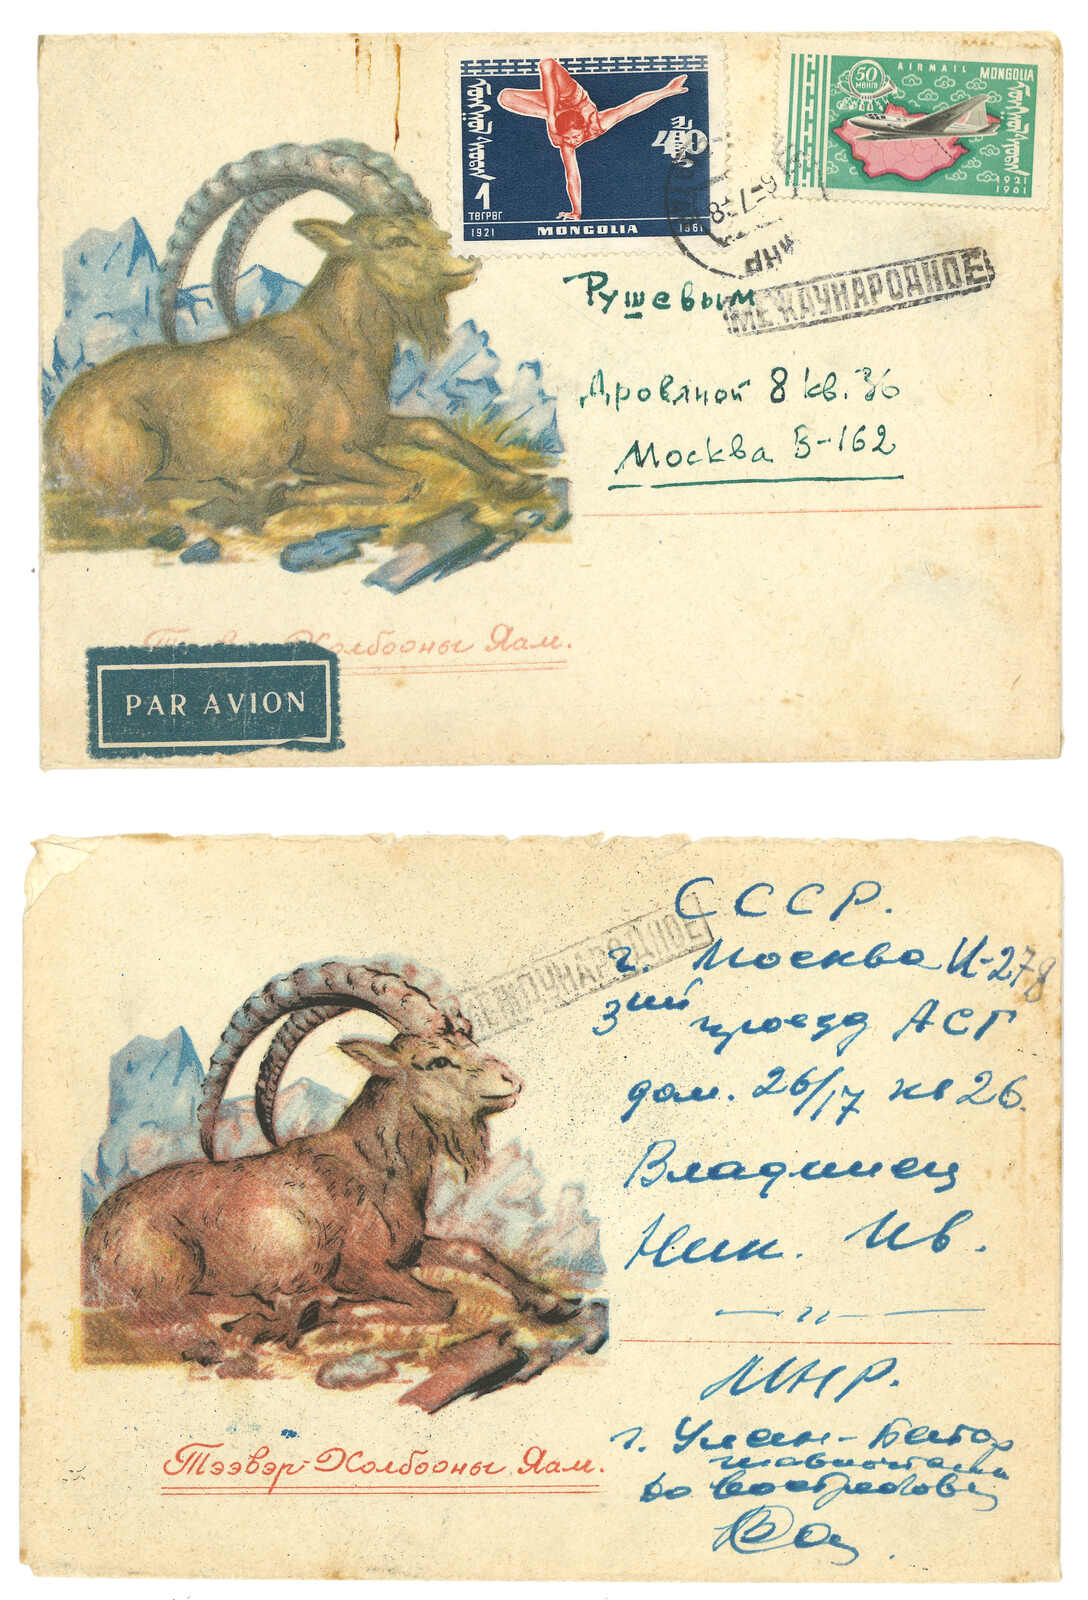 40
1
ТӨГРӨГ
1921 MONGOLIA 1961
AIRMAIL MONGOLIA
50
МӨНГӨ
1921
1961
МНР
МЕЖДУНАРОДНОЕ
Рушевым
Дровяной 8 кв. 36
Москва Б-162
Тээвэр-Холбооны Яам.
PAR AVION
МЕЖДУНАРОДНОЕ
СССР.
г. Москва И-278
3ий проезд АСГ
дом. 26/17 кв 26.
Владимец
Ник. Ив.
МНР.
г. Улан-Батор
главпочтамт
до востребов
Тээвэр-Холбооны Яам.